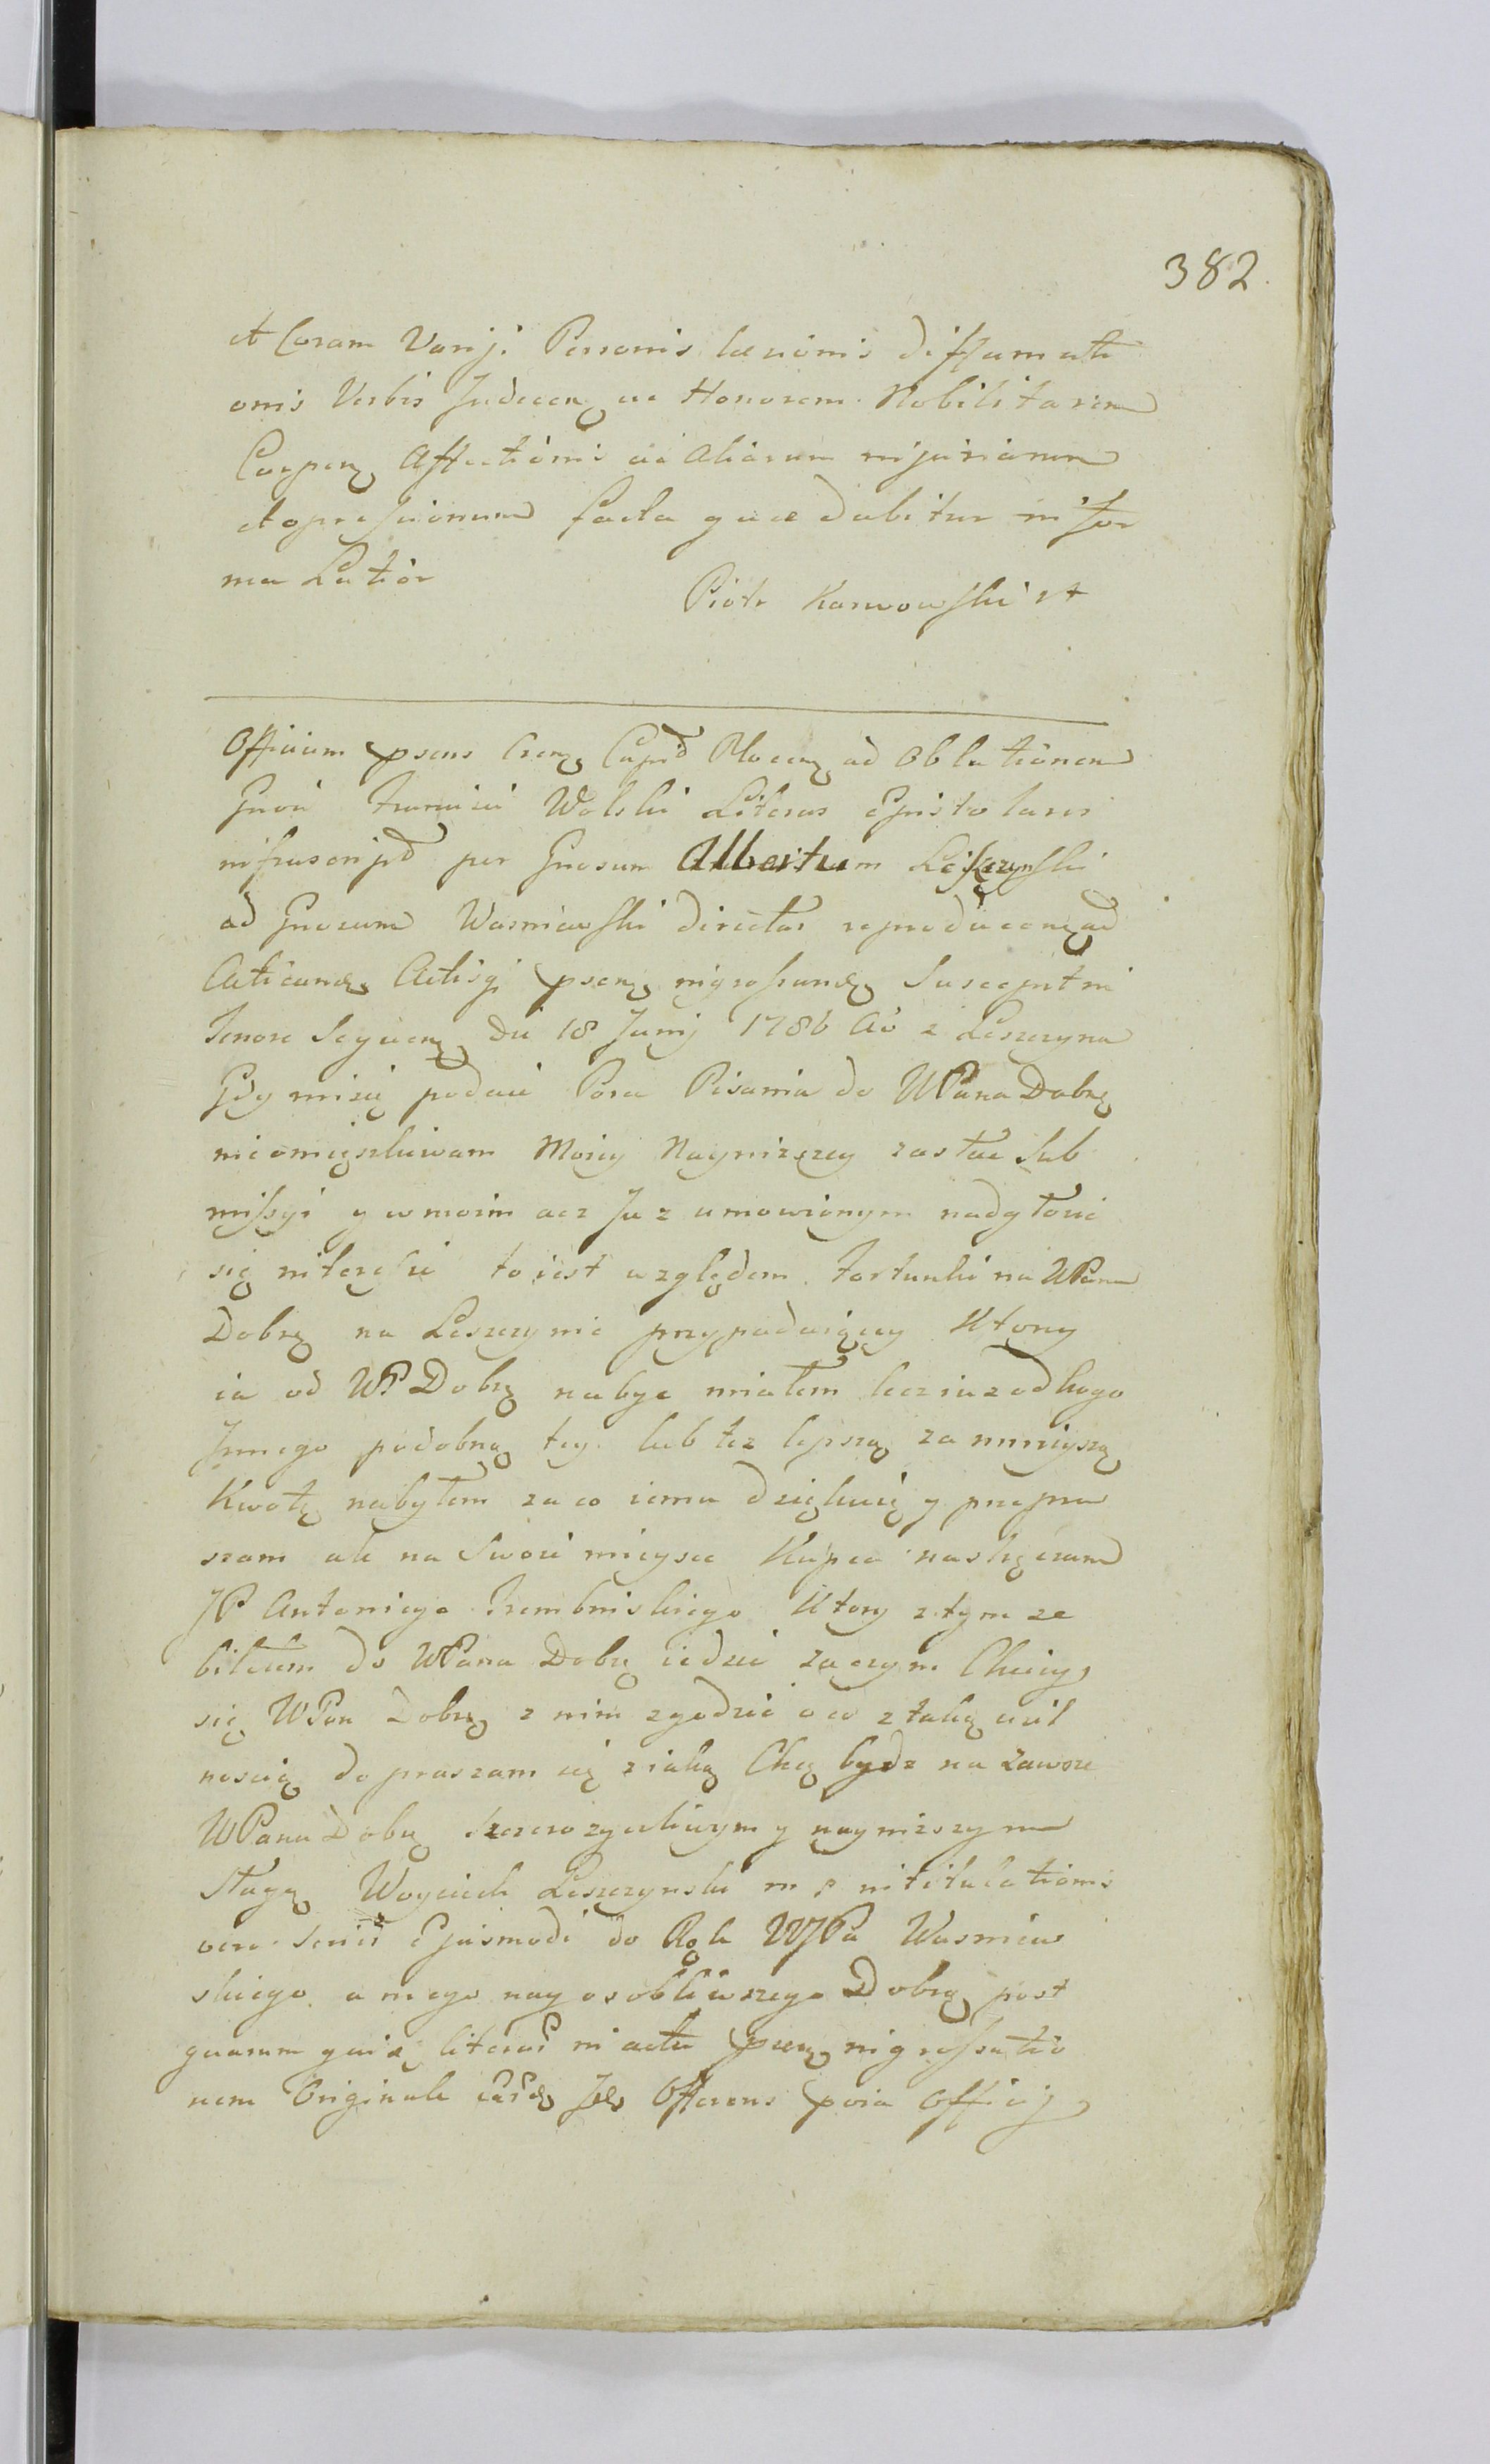 382.
et Coram Varijs Personis laesionis diffamati
onis Verbis Indecen ac Honorem Nobilitarem
Carpen Affectionis ac Aliarum injuriarum
et opressionum facta quae dabitur in for
ma Latior
Piotr Karwowski
Officium psens Cren Capid Plocen ad Oblationem
Gnosi Wolski Literas Epistolares
infrascript per Gnosum Albertum Leszczynski
ad Gnosum Wasniewski directas reproducen ad
Acticand Actisq psen ingrossand Suscepit in
Tenore Sequen Die 18 Junij 1786 Ao z Leszczyna
Gdy misię podaie Pora Pisania do WPana Dobrę
nieomięszkiwam Moiey Nayniższey zostac Sub
missyi y w moim acz Juz umowionym nadgłosic
się interesie to iest względem fortunki na WPana
Dobrę na Leszczynie przypadaiącey Ktory
ia od WP Dobrę nabyc miałem lecz iuz od kogo
Innego podobną tey lub tez lepszą za mnieyszą
Kwotę nabyłem za co iemu dziękuię y prepra
szam ale na Swoie mieysce Kupca nastręczam
JP Antoniego Trembinskiego Ktory z tym ze
biletem do WPana Dobrę iedzie zaczym Chciey
się WPan Dobrę z nim zgodzic o co z taką usil
noscią dopraszam się z iaką Chcę bydz na Zawsze
WPana Dobrę Szczerozyczliwym y nayniższym
Sługą Woyciech Leszczynski m p intitulationis
vero Series Ejusmodi do Rąk WJPa Wasniew
skiego a mego nayosobliwszego Dobrę post
quarum quidę literas in acta psen ingrossatio
nem Originale Offerens Officij